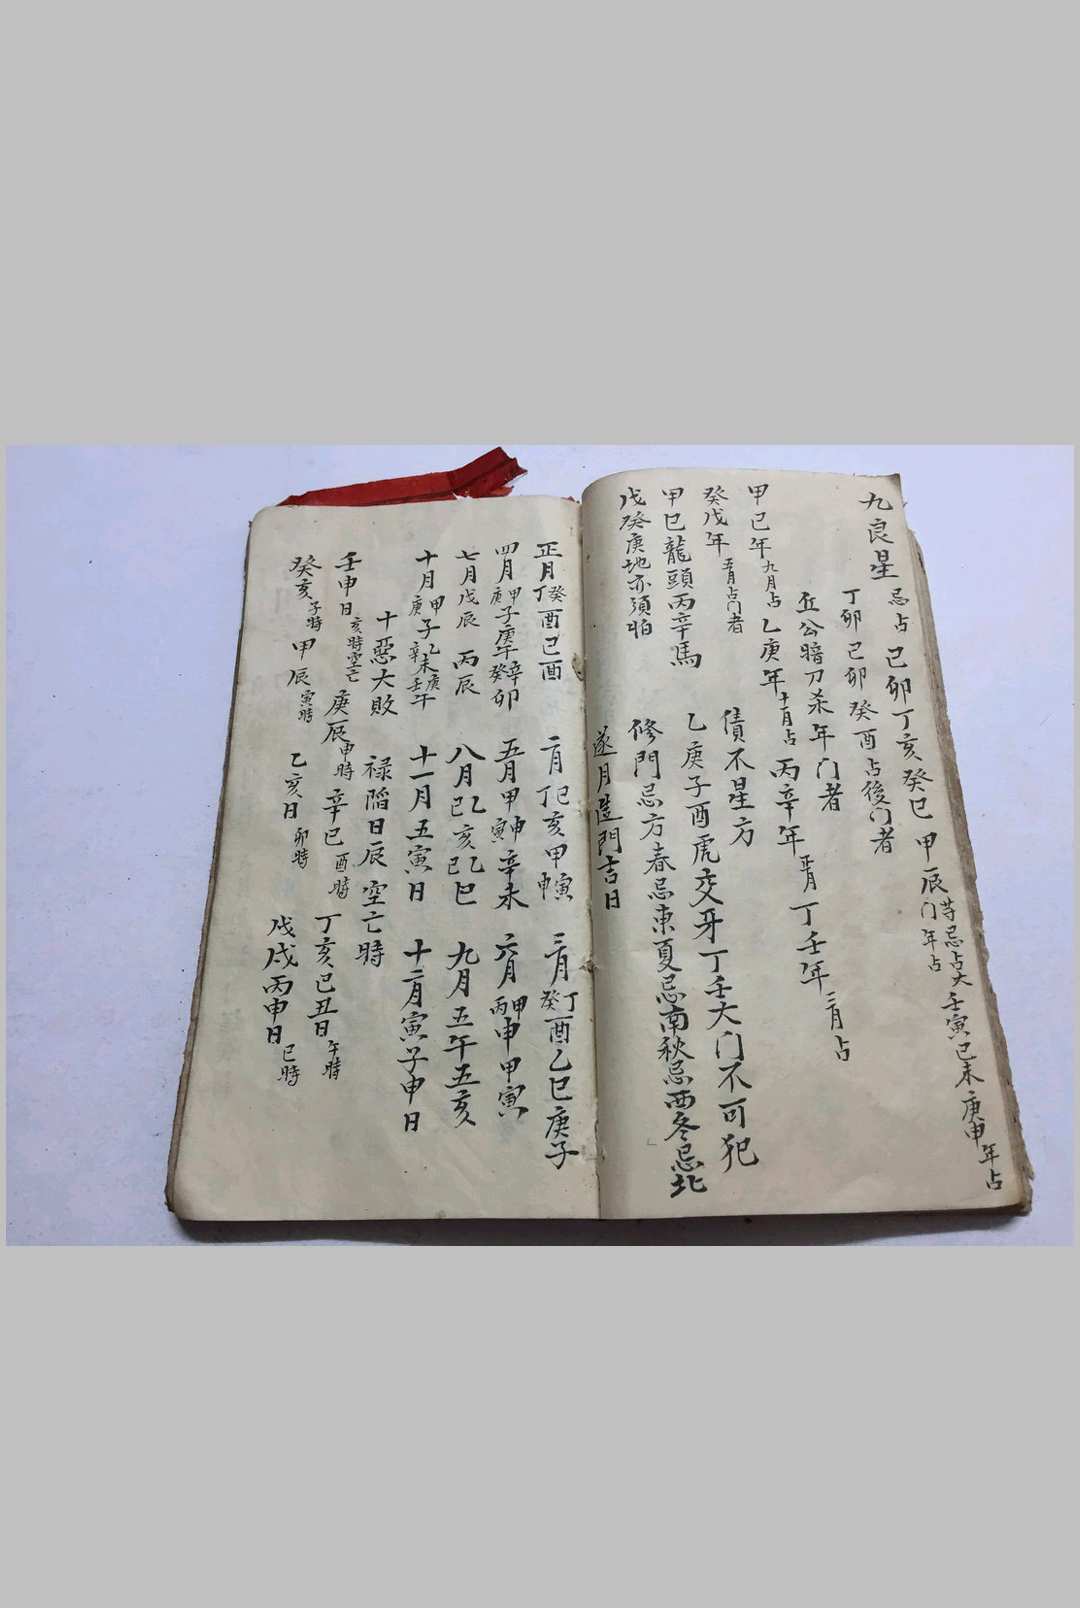 九良星 忌占 己卯丁亥癸巳 甲辰门年占 等忌占大 壬寅己未庚申年占
丁卯己卯癸酉占後门者
丘公暗刀杀年门者
甲己年九月占 乙庚年十一月占 丙辛年正月 丁壬年二月占
癸戊年 占门者 債不星方
甲己龍頭丙辛馬 乙庚子酉虎交牙丁壬大门不可犯
戊癸庚地亦須怕 修門忌方春忌東夏忌南秋忌西冬忌北
遂月造門吉日
正月丁癸酉己酉 二月丁己亥甲寅 三月癸丁酉乙巳庚子
四月甲子庚庚午辛癸卯 五月甲寅申辛未 六月丙甲申甲寅
七月戊辰 丙辰 八月己乙亥己乙巳 九月五午五亥
十月庚甲子辛乙未壬庚午 十一月五寅日 十二月寅子申日
十惡大敗 禄陷日辰空亡時
壬申日亥時空亡 庚辰申時 辛巳酉時 丁亥己丑日午時
癸亥子時 甲辰寅時 乙亥日卯時 戊戌丙申日巳時